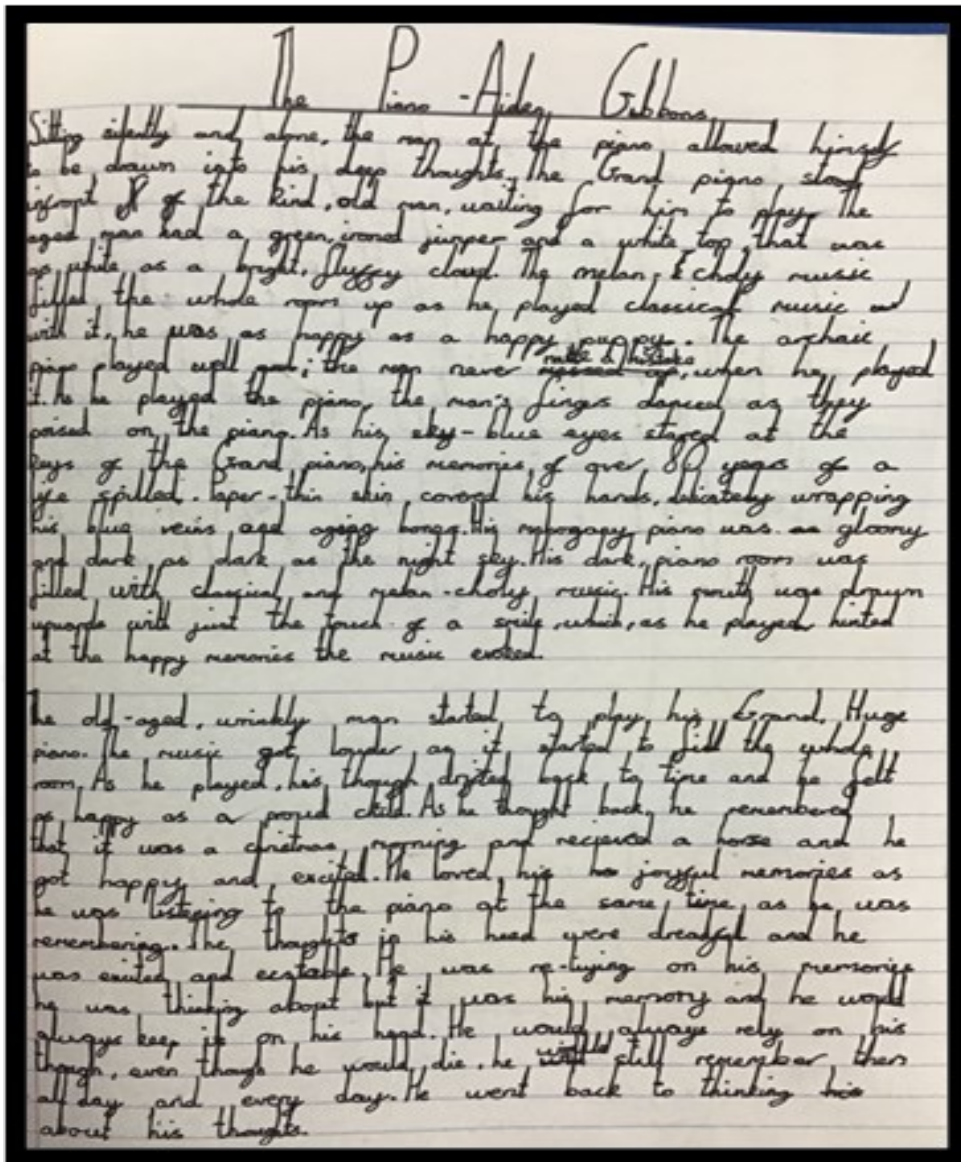 The Piano - Aiden Gibbons
Sitting silently and alone, the man at the piano allowed himself
to be drawn into his deep thoughts. The Grand piano, stood
infront of the kind, old man, waiting for him to play. The
aged man had a green, ironed jumper and a white top, that was
as white as a bright, fluffy cloud. The melan-choly music
filled the whole room up as he played classical music and
with it, he was as happy as a happy puppy. The archaic
piano played well; the man never made a mistake, when he played
it. As he played the piano, the man's fingers danced as they
poised on the piano. As his sky-blue eyes stared at the
keys of the Grand piano, his memories of over 80 years of a
life spilled. Paper-thin skin covered his hands, delicately wrapping
his blue veins and ageing bones. His mahogany piano was gloomy
and dark, as dark as the night sky. His dark, piano room was
filled with classical and melan-choly music. His mouth was drawn
upwards with just the touch of a smile, which, as he played, hinted
at the happy memories the music evoked.
The old-aged, wrinkly man started to play his Grand, Huge
piano. The music got louder as it started to fill the whole
room. As he played, his though drifted back to time and he felt
as happy as a proud child. As he thought back, he remembered
that it was a christmas morning and recieved a horse and he
got happy and excited. He loved his joyful memories as
he was listening to the piano at the same time as he was
remembering. The thoughts in his head were dreadful and he
was exited and. He was re-lying on his memories
he was thinking about but it was his memory and he would
always keep it on his head. He would always rely on his
though, even though he would die, he would still remember them
all day and every day. He went back to thinking
about his thoughts.